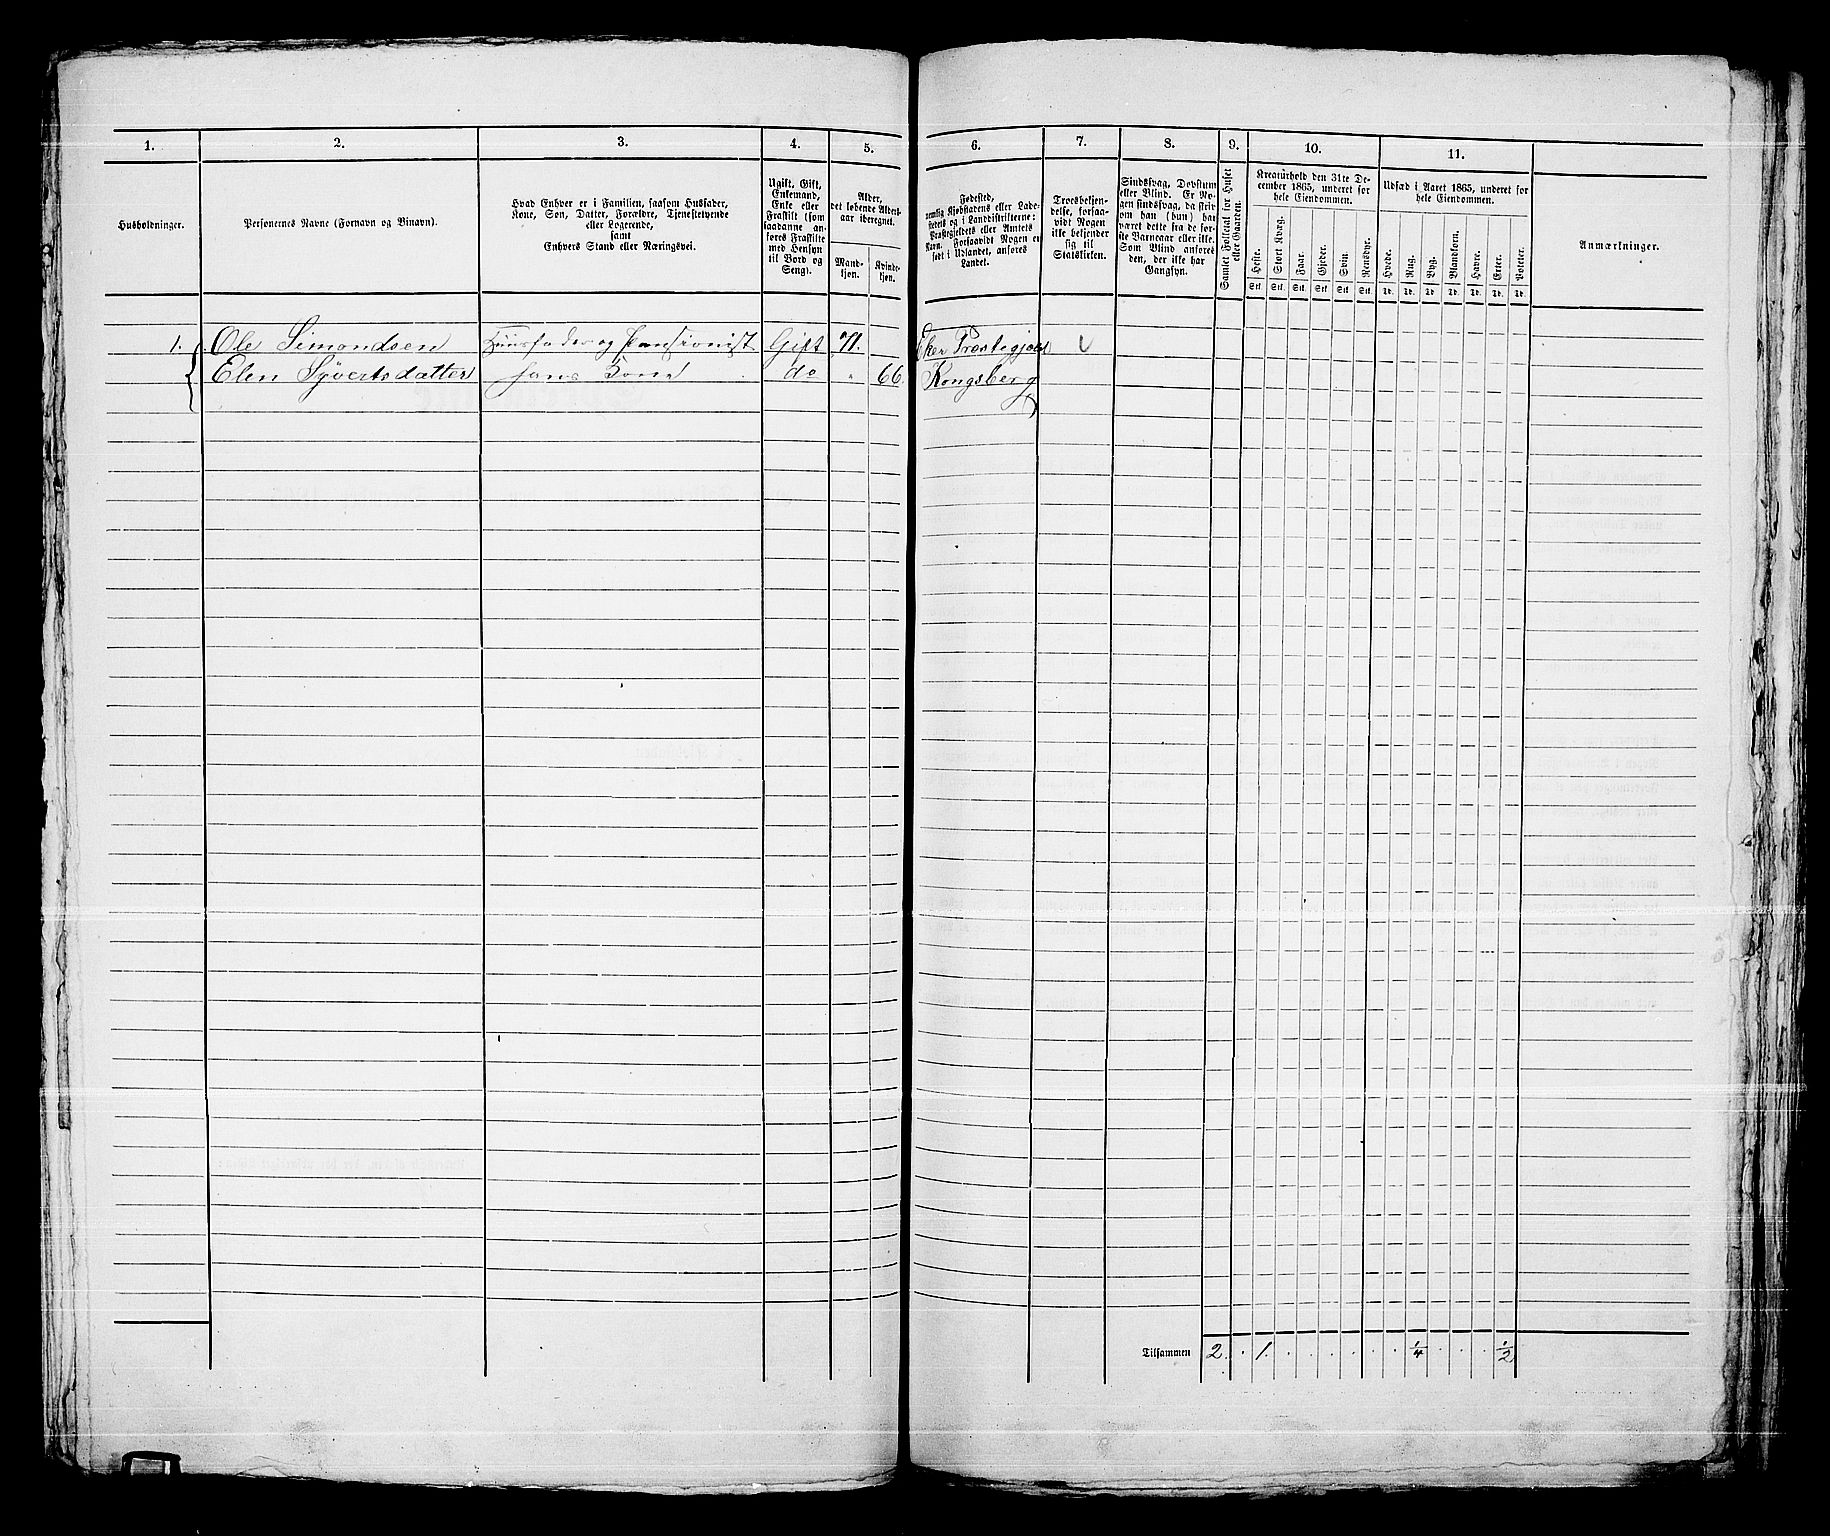 1. 2. 3. 4. 5. 6. 7. 8. 9. 10. 11.
Husholdninger.
Personernes Navne (Fornavn og Binavn).
Hvad Enhver er i Familien, saasom Husfader,
Kone, Søn, Datter, Forældre, Tjenestetyende
eller Logerende,
samt
Enhvers Stand eller Næringsvei.
Ugift, Gift,
Enkemand,
Enke eller
Fraskilt (som
saadanne an-
føres Fraskilte
med Hensyn
til Bord og
Seng).
Alder,
det løbende Alders-
aar iberegnet.
Mand-
kjøn.
Kvinde-
kjøn.
Fødested,
nemlig Kjøbstadens eller Lade-
stedets og i Landdistrikterne:
Præstegjeldets eller Amtets
Navn. Forsaavidt Nogen er
født i Udlandet, anføres
Landet.
Troesbekjen-
delse, forsaa-
vidt Nogen
ikke bekjender
sig til
Statskirken.
Sindssvag, Døvstum
eller Blind. Er No-
gen sindssvag, da skriv
om han (hun) har
været dette fra de før-
ste Barneaar eller ikke.
Som Blind anføres
den, der ikke har
Gangsyn.
Gamlet Folketal for Huset
eller Gaarden.
Kreaturhold den 31te De-
cember 1865, underet for
hele Eiendommen.
Heste. Stort Kvæg. Faar. Gjeder. Svin. Rensdyr.
Stk. Stk. Stk. Stk. Stk. Stk.
Udsæd i Aaret 1865, underet for
hele Eiendommen.
Hvede. Rug. Byg. Blandkorn. Havre. Erter. Poteter.
Td. Td. Td. Td. Td. Td. Td.
Anmærkninger.
1. Ole Simondsen Huusfader og Pensionist Gift 71. Eker Præstegjeld
Elen Syvertsdatter hans Kone do " 66. Kongsberg
Tilsammen 2. . 1. . . . . . . 1/4 . . . 1/2